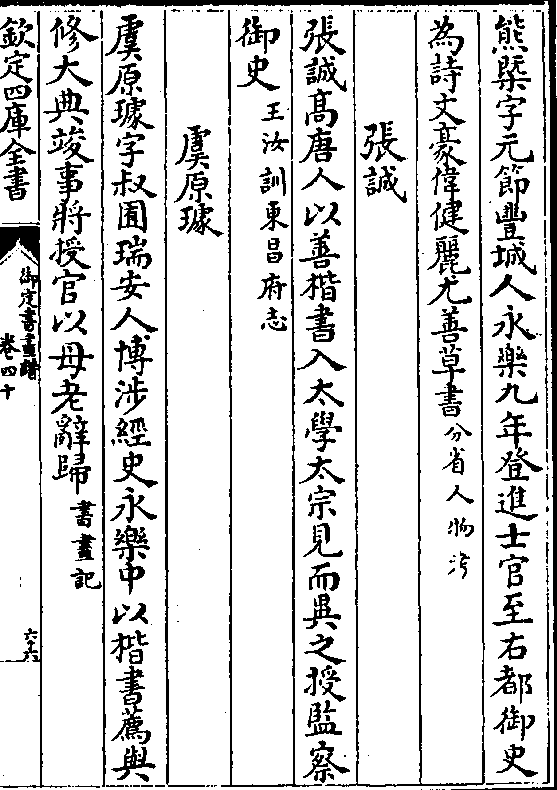 熊槩字元節豐城人永樂九年登進士官至右都御史
為詩文豪偉健麗尤善草書分省人物考
張誠
張誠髙唐人以善楷書入太學太宗見而異之授監察
御史王汝訓東昌府志
虞原璩
虞原璩字叔圃瑞安人博涉經史永樂中以楷書薦與
修大典竣事將授官以母老辭歸書畫記
欽定四庫全書
御定書畫譜
卷四十
六十六